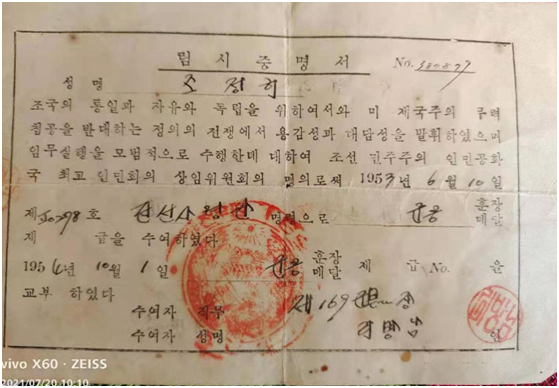 림시증명서
No. 380877
성명 조정히
조국의 통일과 자유와 독립을 위하여서와 미 제국주의 무력
침공을 반대하는 정의의 전쟁에서 용감성과 대담성을 발휘하였으며
임무실행을 모범적으로 수행한데 대하여 조선 민주주의 인민공화
국 최고 인민회의 상임위원회의 명의로써 1953년 6월 10일
제 호 명령으로 군공 훈장
메달
제 급을 수여하였다
1954년 10월 1일 군공 훈장
메달 제 급 No. 을
교부 하였다
수여자 직무 제 169
수여자 성명 인
vivo X60 · ZEISS
2021/07/20 10:10